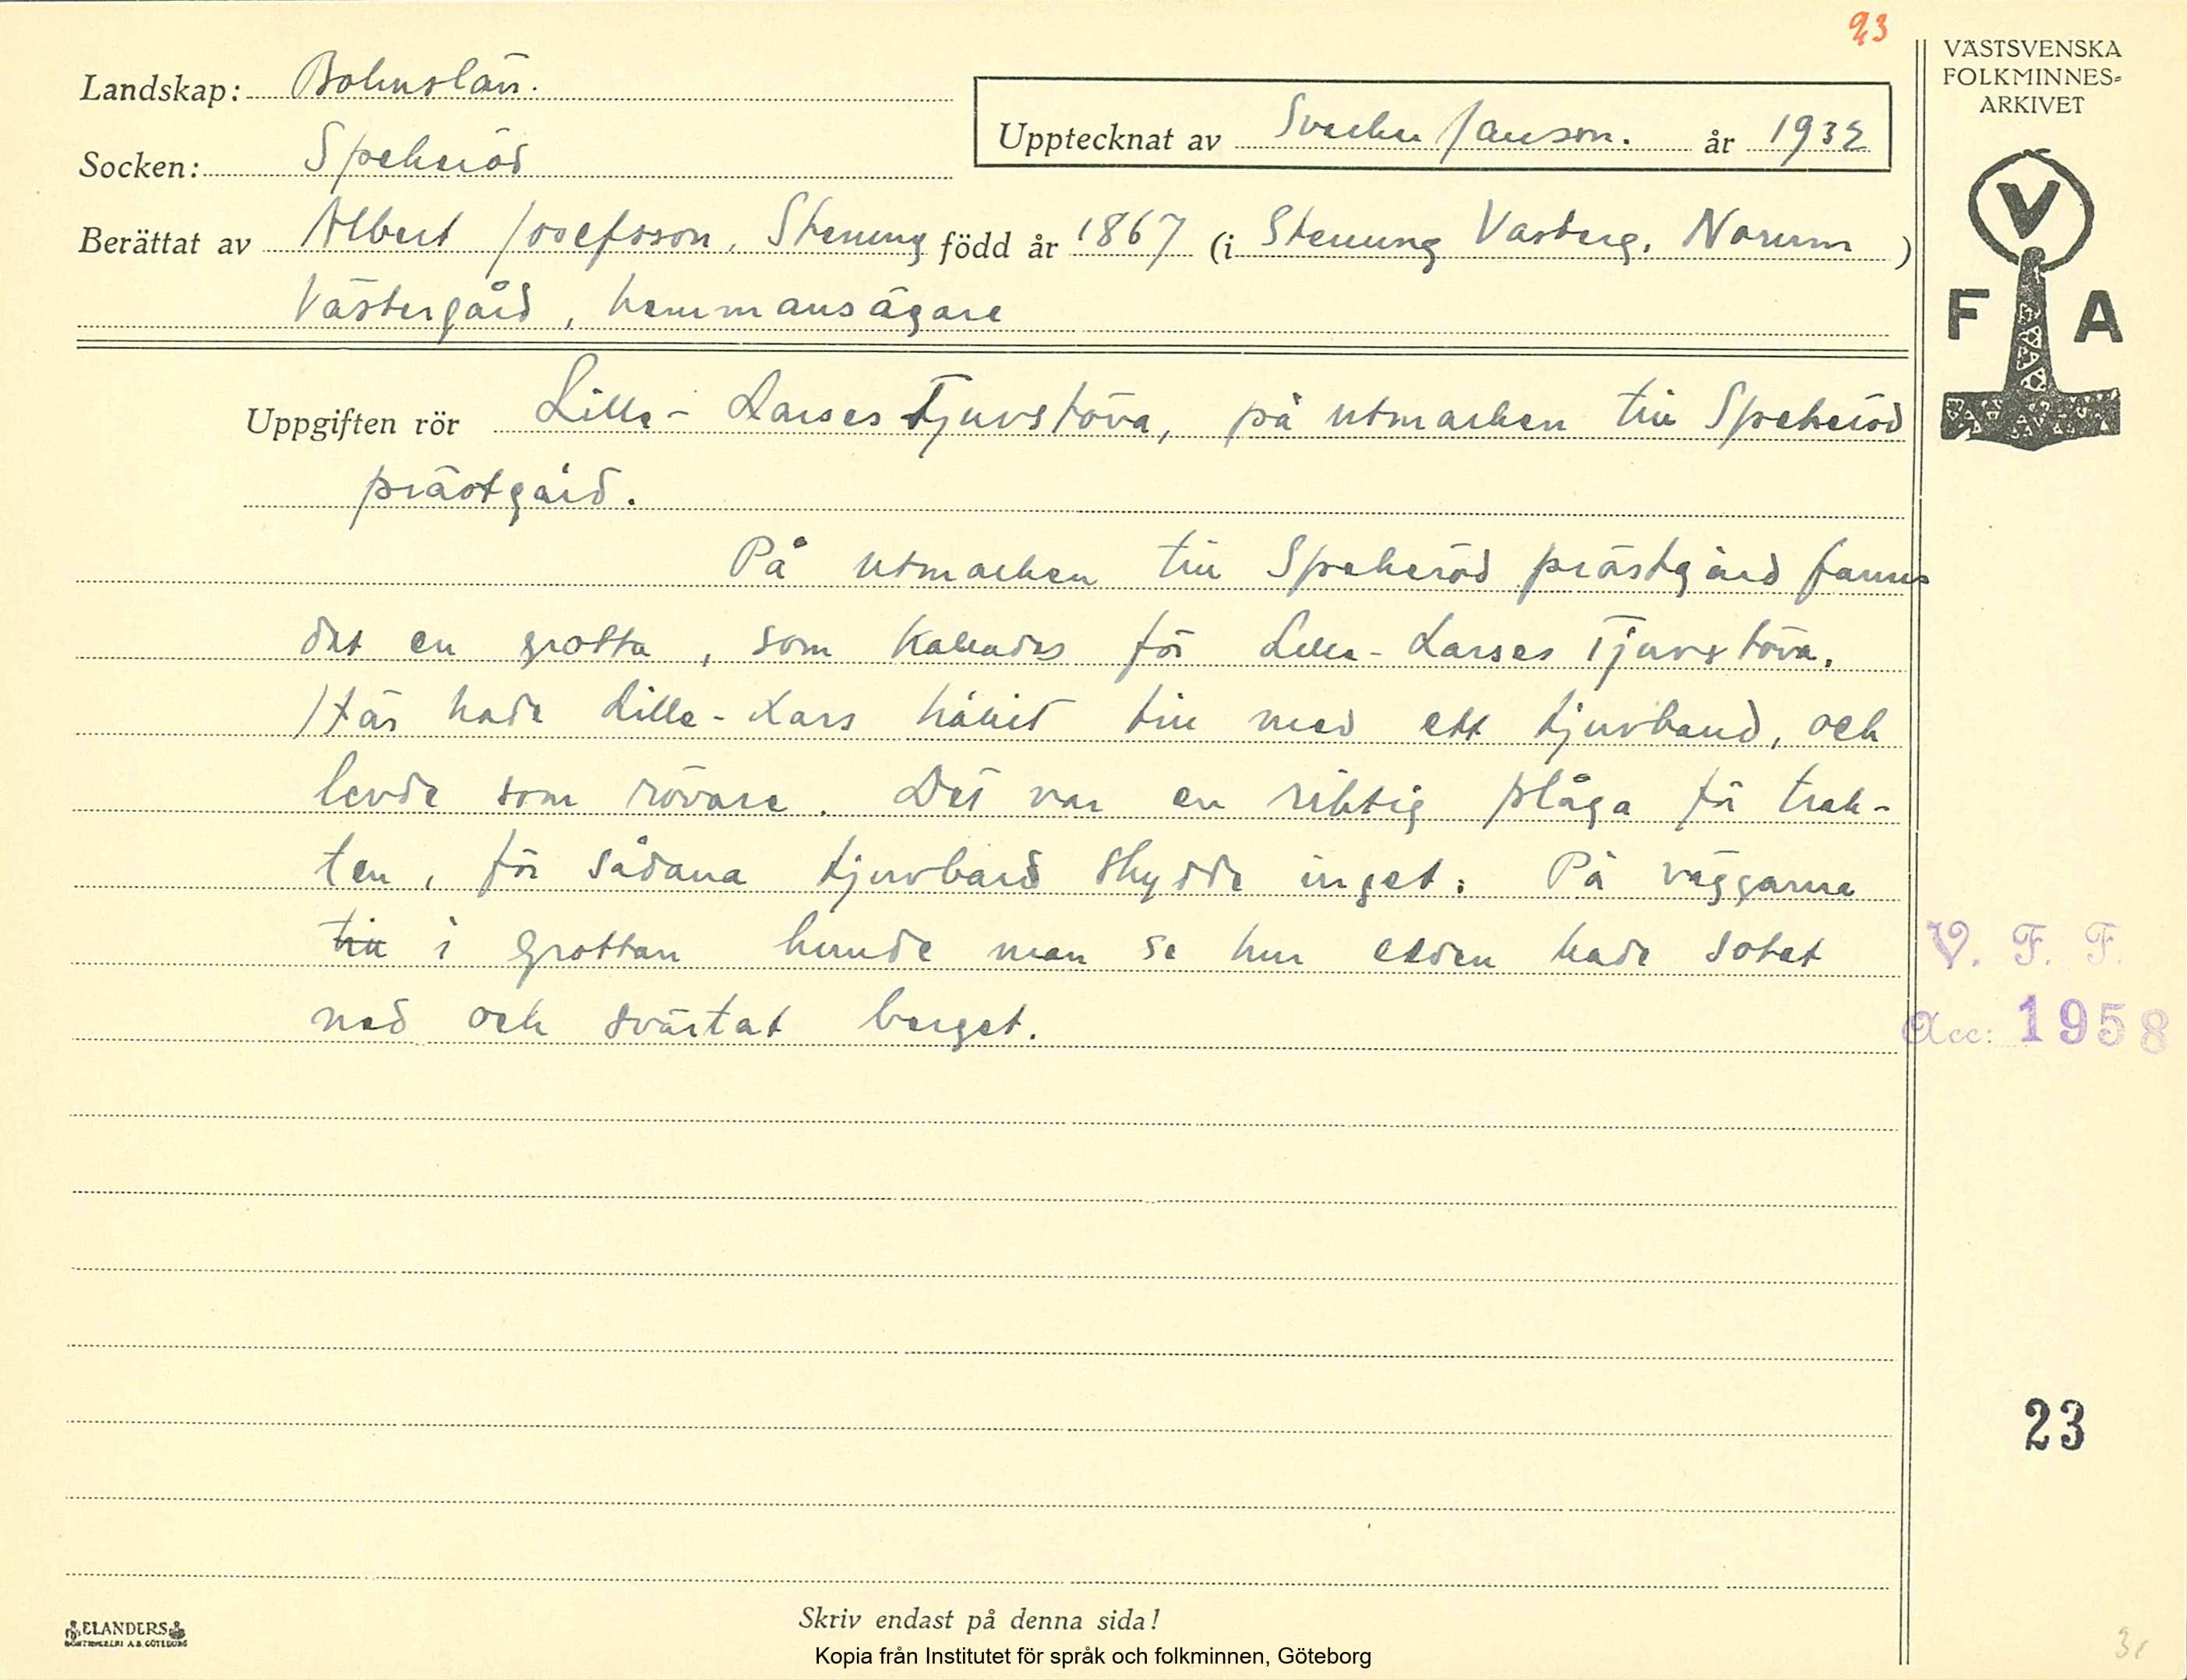 23
VÄSTSVENSKA
FOLKMINNES-
ARKIVET
Landskap: Bohuslän.
Upptecknat av Sverker Janson. år 1932
Socken: Spekeröd
Berättat av Albert Josefsson, Stenung född år 1867 (i Stenung Vasberg, Norum)
Västergård, hemmansägare
V
F A
Uppgiften rör Lille-Larses Tjuvstöva, på utmarken till Spekeröd
prästgård.
På utmarken till Spekeröd prästgård fanns
det en grotta, som kallades för Lille-Larses Tjuvstöva.
Här hade Lille-Lars hållit till med ett tjuvband, och
levde som rövare. Det var en riktig plåga för trak-
ten, för sådana tjuvband skydde inget. På väggarna
till i grottan kunde man se hur elden hade sotat
ned och svärtat berget.
V. F. F.
Acc: 1958
23
Skriv endast på denna sida!
ELANDERS
Kopia från Institutet för språk och folkminnen, Göteborg